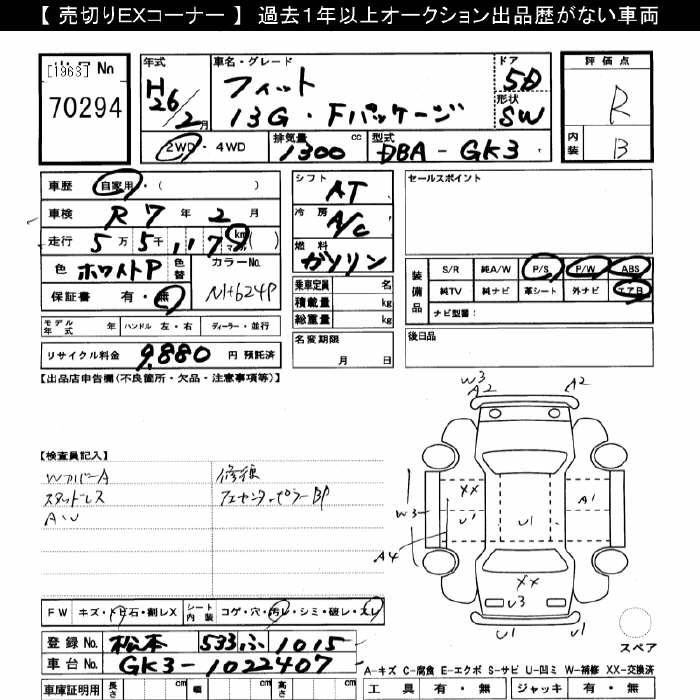 【 売切りEXコーナー 】 過去１年以上オークション出品歴がない車両
[1963] No
70294
年式
H26/2月
車名・グレード
フィット
13G・Fパッケージ
ドア
5D
形状
SW
評価点
R
内装
B
2WD・4WD
排気量
1300 cc
型式
DBA-GK3
車歴 自家用・( )
車検 R 7 年 2 月
走行 5万 5千 1 1 7 km マイル ( )
色 ホワイトP 色替
カラーNo.
NH624P
保証書 有・無
モデル年式 年 ハンドル 左・右 ディーラー・並行
リサイクル料金 9,880 円 預託済
シフト AT
冷房 A/C
燃料 ガソリン
乗車定員 名
積載量 kg
総重量 kg
名変期限
月 日
セールスポイント
装備品
S/R 純A/W P/S P/W ABS
純TV 純ナビ 革シート 外ナビ エアB
ナビ型番：
後日品
【出品店申告欄(不良箇所・欠品・注意事項等)】
【検査員記入】
Wカバー A
スタッドレス
修復
W3
A2
A2
W3
XX
U1
U1
A1
A4
XX
U3
U1
U1
スペア
FW キズ・トビ石・割レX シート内装 コゲ・穴・汚レ・シミ・破レ・スレ
登録No. 松本 533 ふ 1015
車台No. GK3-1022407
A-キズ C-腐食 E-エクボ S-サビ U-凹ミ W-補修 XX-交換済
車庫証明用 長さ cm 幅 cm 高さ cm
工具 有・無 ジャッキ 有・無